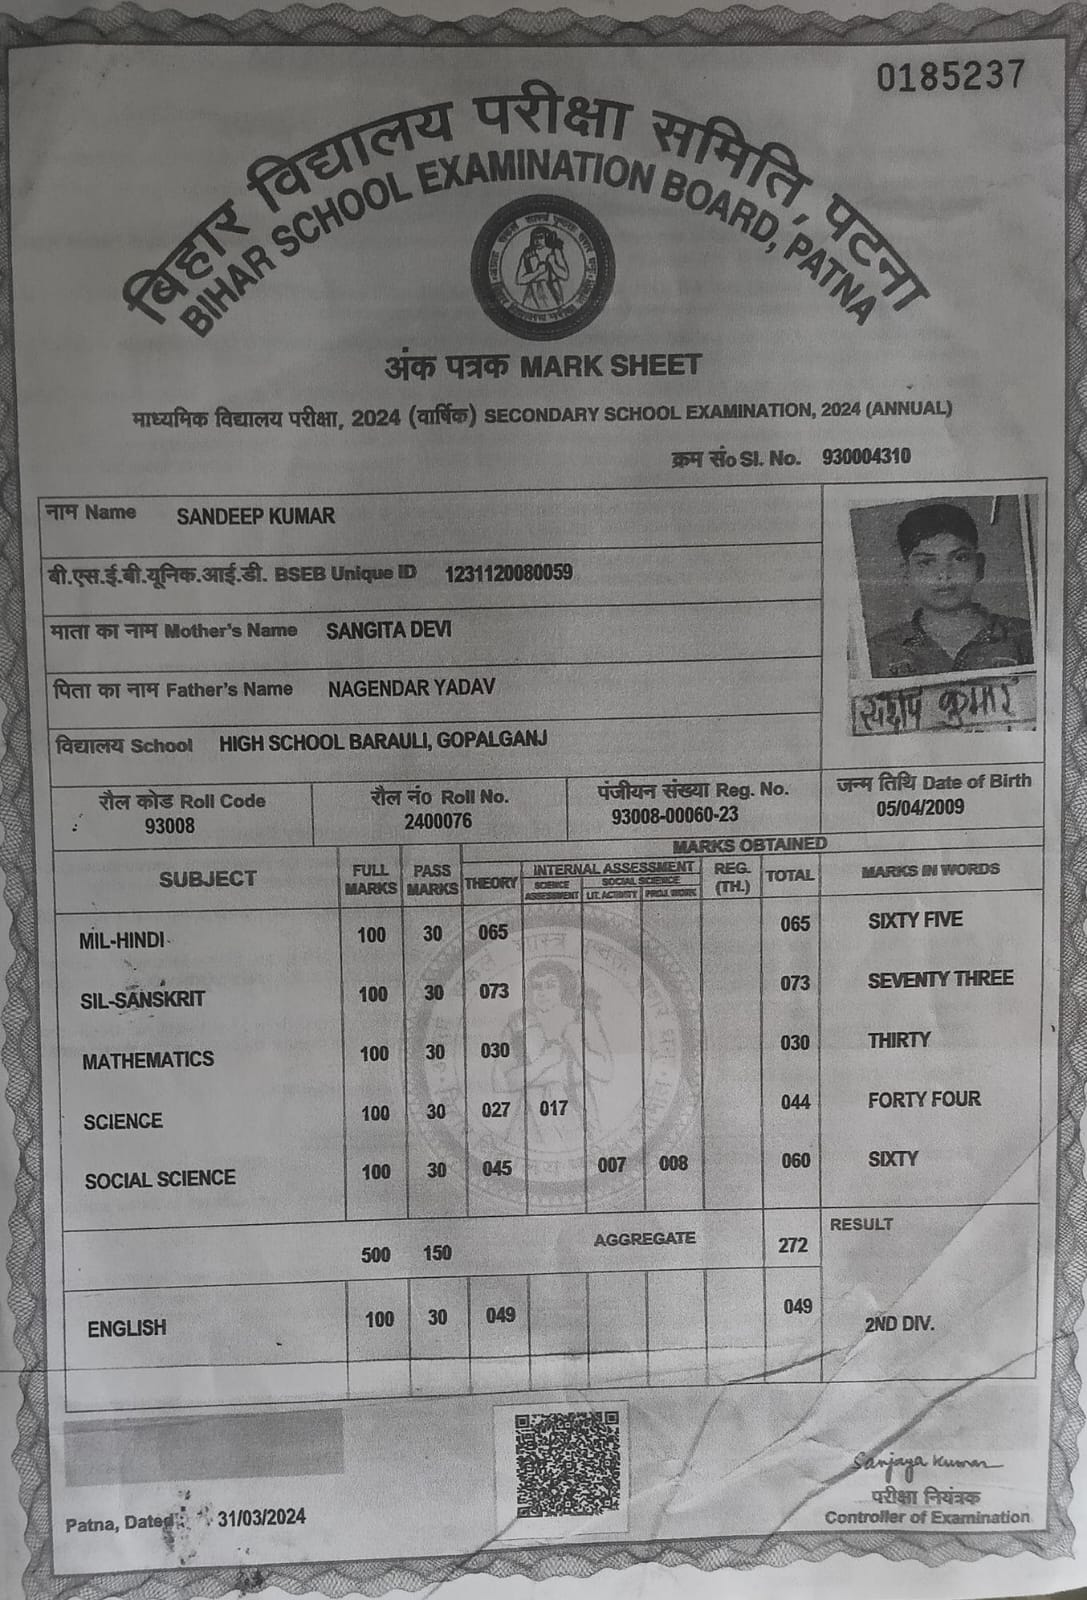 0185237
बिहार विद्यालय परीक्षा समिति, पटना
BIHAR SCHOOL EXAMINATION BOARD, PATNA
अंक पत्रक MARK SHEET
माध्यमिक विद्यालय परीक्षा, 2024 (वार्षिक) SECONDARY SCHOOL EXAMINATION, 2024 (ANNUAL)
क्रम सं० Sl. No. 930004310
नाम Name SANDEEP KUMAR
बी.एस.ई.बी.यूनिक.आई.डी. BSEB Unique ID 1231120080059
माता का नाम Mother's Name SANGITA DEVI
पिता का नाम Father's Name NAGENDAR YADAV
कुमार
विद्यालय School HIGH SCHOOL BARAULI, GOPALGANJ
रौल कोड Roll Code रौल नं० Roll No. पंजीयन संख्या Reg. No. जन्म तिथि Date of Birth
93008 2400076 93008-00060-23 05/04/2009
MARKS OBTAINED
SUBJECT FULL MARKS PASS MARKS THEORY INTERNAL ASSESSMENT REG. (TH.) TOTAL MARKS IN WORDS
SCIENCE ASSESSMENT SOCIAL SCIENCE
LIT. ACTIVITY PROJ. WORK
MIL-HINDI 100 30 065 065 SIXTY FIVE
SIL-SANSKRIT 100 30 073 073 SEVENTY THREE
MATHEMATICS 100 30 030 030 THIRTY
SCIENCE 100 30 027 017 044 FORTY FOUR
SOCIAL SCIENCE 100 30 045 007 008 060 SIXTY
500 150 AGGREGATE 272 RESULT
ENGLISH 100 30 049 049 2ND DIV.
Sanjaya Kumar
परीक्षा नियंत्रक
Patna, Dated : 31/03/2024 Controller of Examination